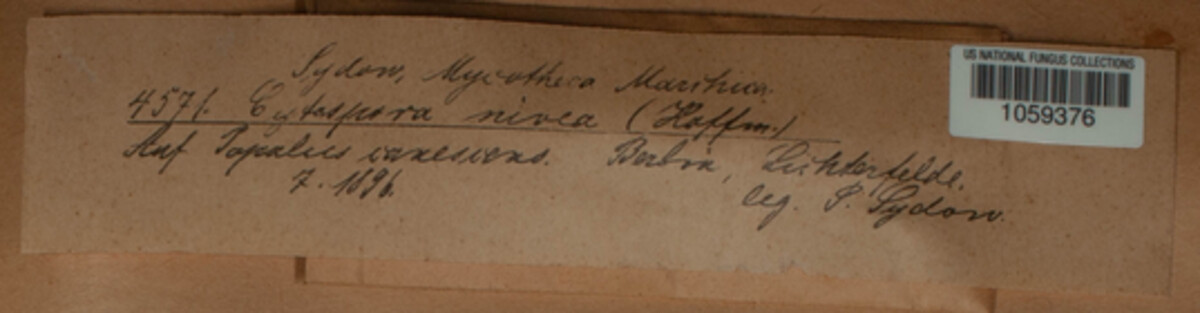 Sydow, Mycotheca Marchica.
4571. Cytospora nivea (Hoffm.)
Auf Populus canescens. Berlin, Lichterfelde.
7. 1896. leg. P. Sydow.
US NATIONAL FUNGUS COLLECTIONS
1059376